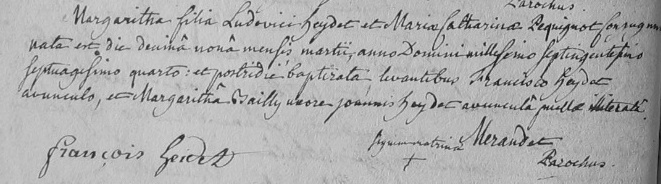 Parochus.
Margaritha filia Ludovici Heydet et Mariæ Catharinæ Pequignot conjugum
nata est die decimâ nonâ mensis martii, anno Domini millesimo septingentesimo
septuagesimo quarto: et postridiè baptizata levantibus Francisco Heydet
avunculo, et Margarithâ Bailly uxore joannis Heydet avunculâ puellæ illiteratâ.
françois Heidet
matrinâ Merandet
+ Parochus.